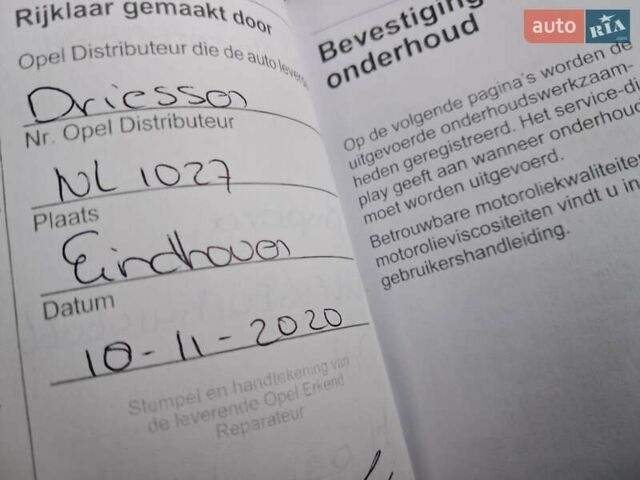 Rijklaar gemaakt door
Opel Distributeur die de auto levere
Driessen
Nr. Opel Distributeur
NL 1027
Plaats
Eindhoven
Datum
10-11-2020
Stempel en handtekening van
de leverende Opel Erkend
Reparateur
Bevestiging
onderhoud
Op de volgende pagina's worden de
uitgevoerde onderhoudswerkzaam-
heden geregistreerd. Het service-di
play geeft aan wanneer onderhoud
moet worden uitgevoerd.
Betrouwbare motoroliekwaliteiten
motorolieviscositeiten vindt u in
gebruikershandleiding.
auto RIA
.com